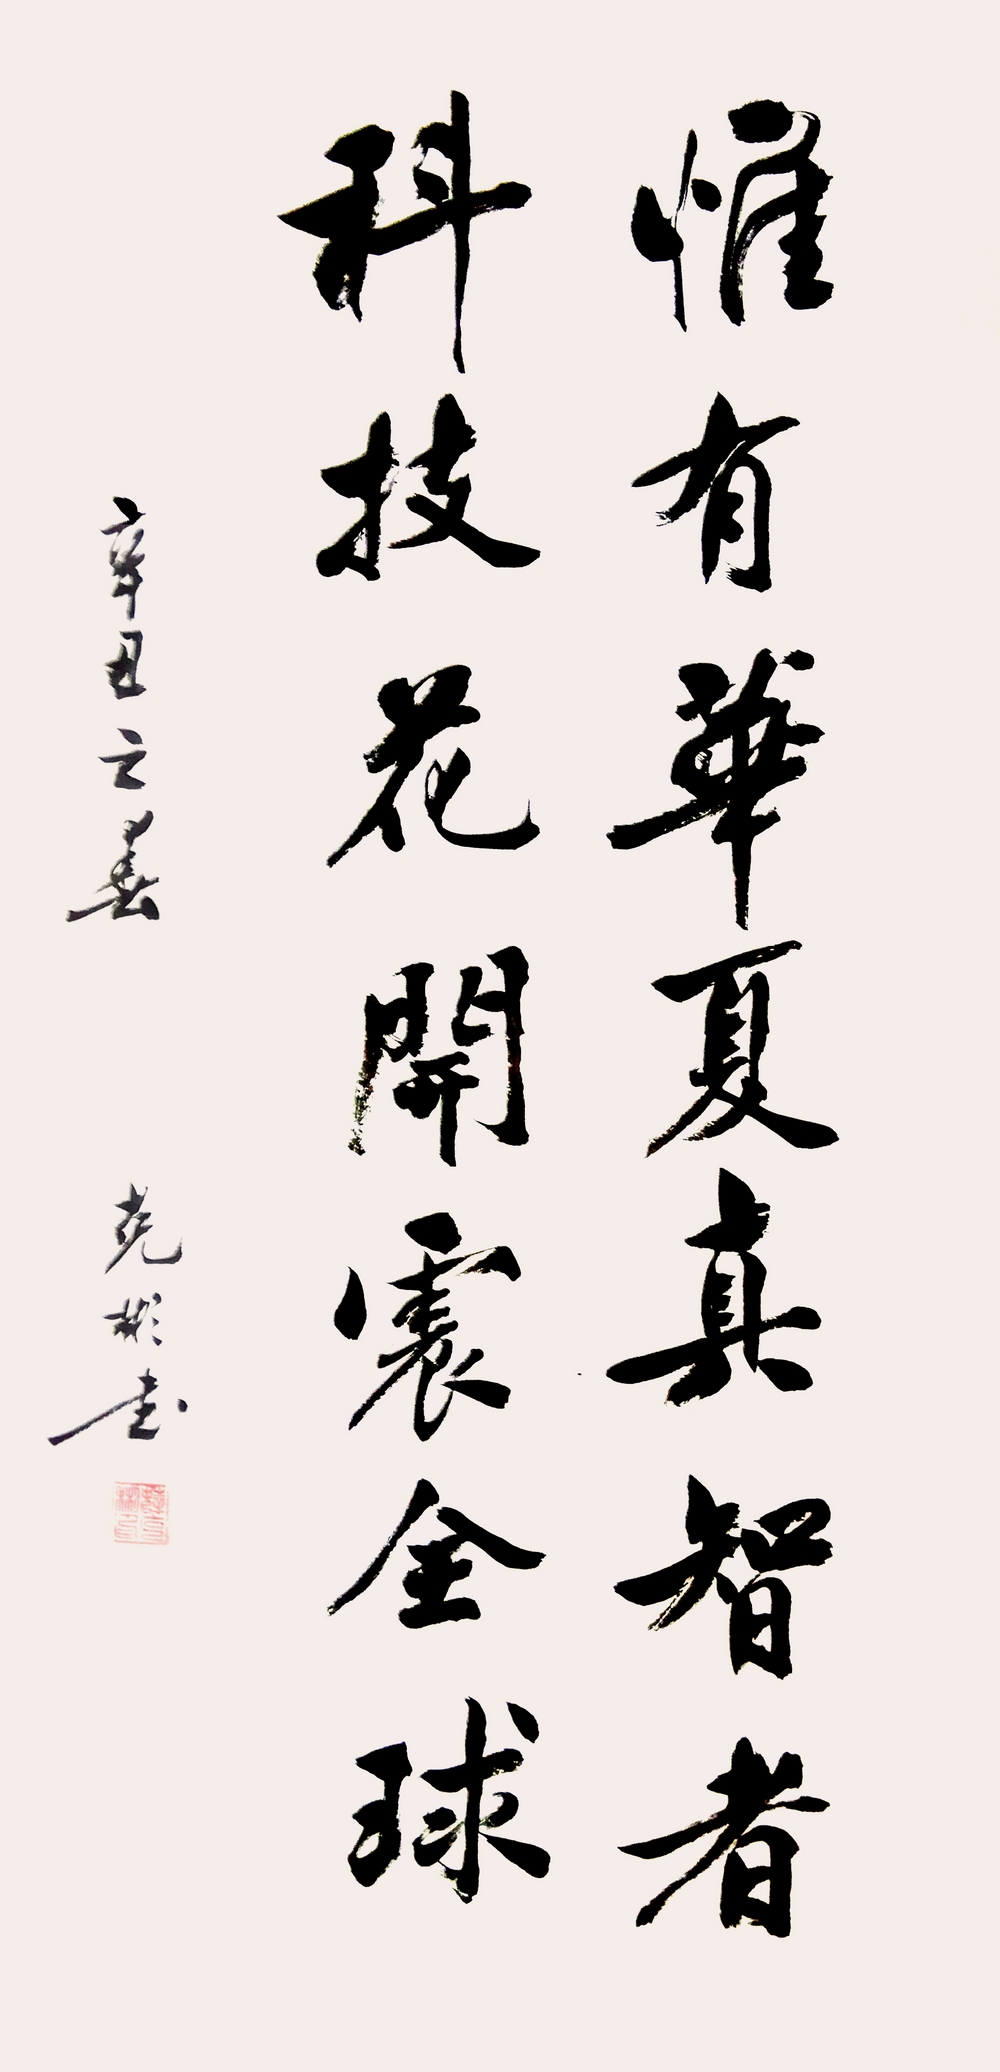 惟有華夏真智者
科技花開震全球
辛丑之春 克彬書